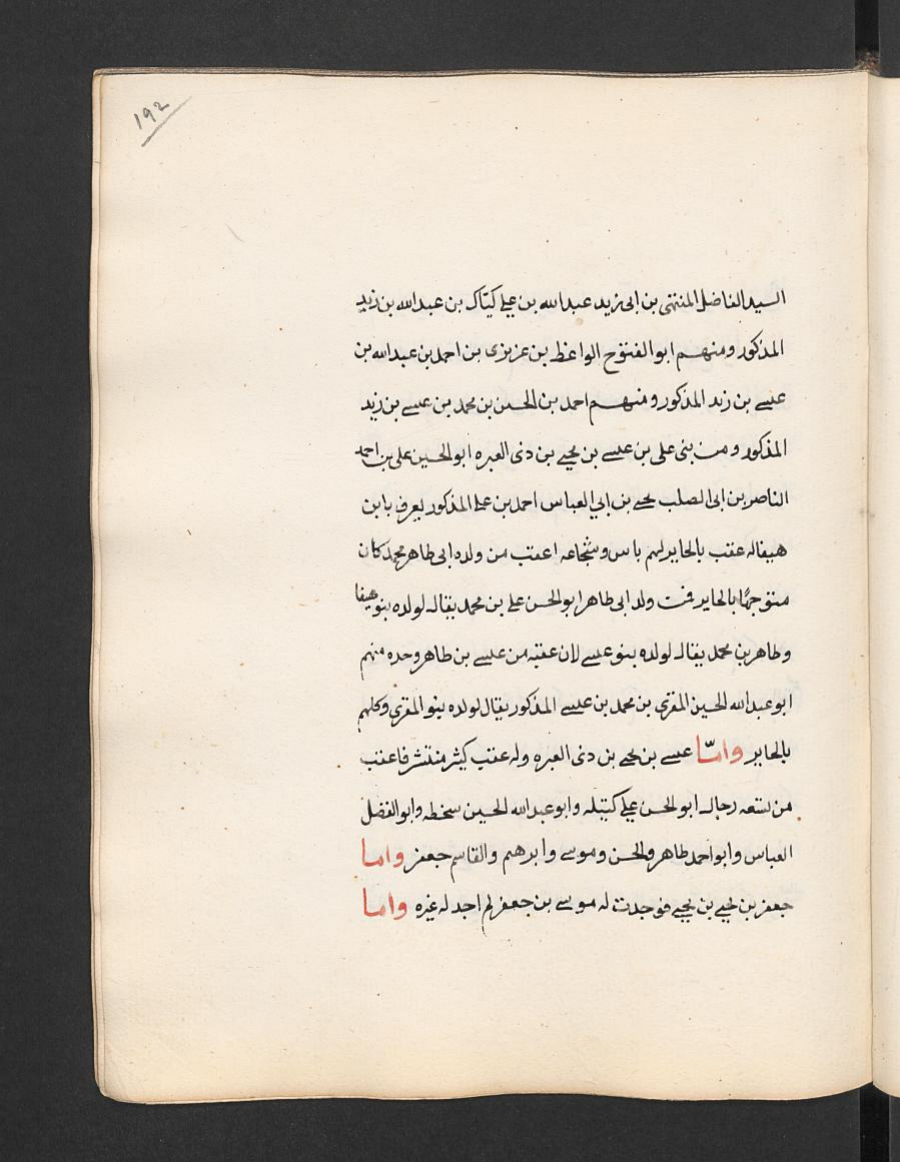 ١٩٢
السيد الفاضل المنتهى بن ابى زيد عبدالله بن على كياكى بن عبدالله بن زيد
المذكور ومنهم ابو الفتوح الواعظ بن عزيزى بن احمد بن عبدالله بن
عيسى بن زيد المذكور ومنهم احمد بن الحسن بن محمد بن عيسى بن زيد
المذكور ومن بنى على بن عيسى بن يحيى بن ذى العبره ابو الحسين على بن احمد
الناصر بن ابى الصلب يحيى بن ابي العباس احمد بن على المذكور يعرف بابن
هيفاله عقب بالحاير لهم باس وشجاعه اعقب من ولده ابى طاهر محمد كان
متوجهًا بالحاير فمن ولد ابى طاهر ابو الحسن على بن محمد يقال لولده بنو هيفا
وطاهر بن محمد يقال لولده بنو عيسى لان عقبه من عيسى بن طاهر وحده منهم
ابو عبدالله الحسين المقرى بن محمد بن عيسى المذكور يقال لولده بنو المقرى وكلهم
بالحاير وامّا عيسى بن يحيى بن ذى العبره وله عقب كثير منتشر فاعقب
من تسعه رجال ابو الحسن على كتيله وابو عبدالله الحسين سخطه وابو الفضل
العباس وابو احمد طاهر والحسن وموسى وابرهيم والقاسم جعفر واما
جعفر بن يحيى بن يحيى فوجدت له موسى بن جعفر لم اجد له غيره واما